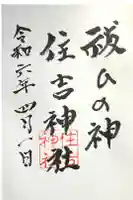 祓ひの神
住吉神社
令和六年四月一日